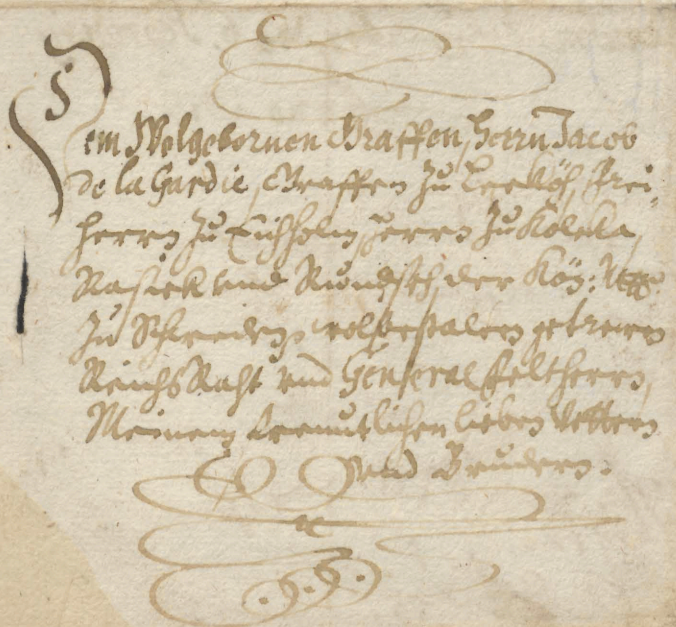 Dem Wolgebornen Graffen, Herrn Jacob
de la Gardie, Graffen zu Leckoh, Frei-
herrn zu Eichholm, Herrn zu Kolcka,
Kasick und Rundsch, der Kön: Mtt
zu Schweden wolbestalten getrewen
Reichs Raht und General Feltherrn,
Meinem freundtlichen lieben Vettern
und Brudern.